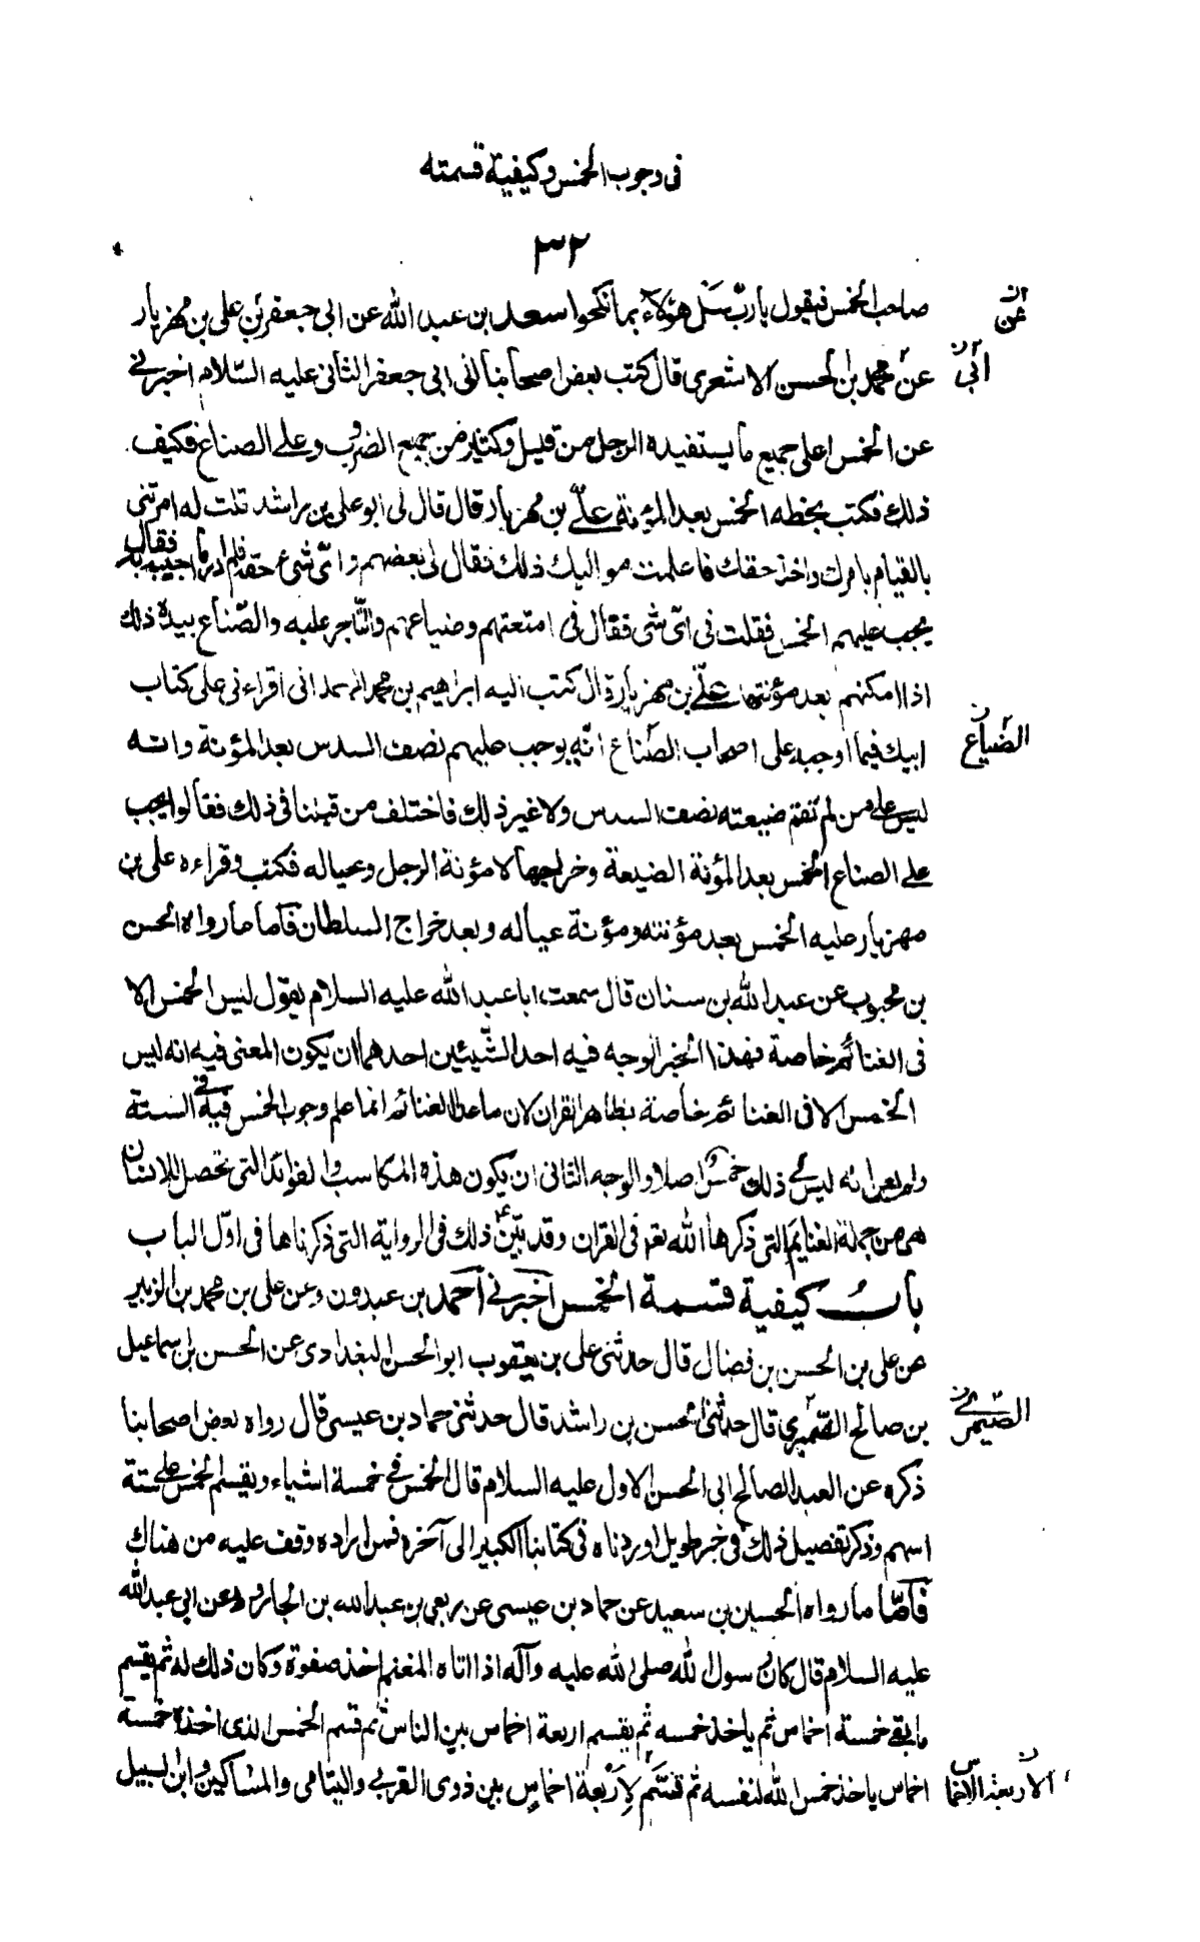 فى وجوب الخمس وكيفية قسمته
٣٢
صاحب الخمس فيقول يارب سل هؤلاء بما نكحوا سعد بن عبد الله عن ابى جعفر عن على بن مهزيار
عن محمد بن الحسن الاشعرى قال كتب بعض اصحابنا الى ابى جعفر الثانى عليه السلام اخبرنى
عن الخمس اعلى جميع ما يستفيده الرجل من قليل وكثير من جميع الضروب وعلى الصناع فكيف
ذلك فكتب بخطه الخمس بعد المؤنة على بن مهزيار قال قال لى ابو على بن راشد قلت له امرتنى
بالقيام بامرك واخذ حقك فاعلمت مواليك ذلك فقال لى بعضهم واى شىء حقه فلم ادر ما اجيبه فقال
يجب عليهم الخمس فقلت فى اى شى فقال فى امتعتهم وضياعهم والتاجر عليه والصناع بيده ذلك
اذا امكنهم بعد مؤنتهم على بن مهزيار قال كتب اليه ابراهيم بن محمد الهمدانى اقراءنى على كتاب
ابيك فيما اوجبه على اصحاب الضياع انه يوجب عليهم نصف السدس بعد المؤنة وانه
ليس على من لم تقم ضيعته نصف السدس ولا غير ذلك فاختلف من قبلنا فى ذلك فقالوا يجب
على الصناع الخمس بعد المؤنة الضيعة وخراجها لا مؤنة الرجل وعياله فكتب وقراءه على بن
مهزيار عليه الخمس بعد مؤنته ومؤنة عياله وبعد خراج السلطان فاما ما رواه الحسن
بن محبوب عن عبد الله بن سنان قال سمعت ابا عبد الله عليه السلام يقول ليس الخمس الا
فى الغنائم خاصة فهذا الخبر الوجه فيه احد الشيئين احدهما ان يكون المعنى فيه انه ليس
الخمس الا فى الغنائم خاصة بظاهر القران لان ما عدا الغنائم انما علم وجوب الخمس فيه فى السنة
ولم يعن انه ليس فى ذلك خمس اصلا والوجه الثانى ان يكون هذه المكاسب والفوائد التى تحصل للانسان
هى من جملة الغنايم التى ذكرها الله تعم فى القران وقد بيّن ع ذلك فى الرواية التى ذكرناها فى اوّل الباب
باب كيفية قسمة الخمس اخبرنى احمد بن عبدون وعن على بن محمد بن الزبير
عن على بن الحسن بن فضال قال حدثنى على بن يعقوب ابو الحسن البغدادى عن الحسن بن اسماعيل
بن صالح الصيمرى قال حدثنى الحسن بن راشد قال حدثنى حماد بن عيسى قال رواه بعض اصحابنا
ذكره عن العبد الصالح ابى الحسن الاول عليه السلام قال الخمس فى خمسة اشياء ويقسم الخمس على ستة
اسهم وذكر تفصيل ذلك فى خبر طويل اوردناه فى كتابنا الكبير الى آخره فمن اراده وقف عليه من هناك
فامّا ما رواه الحسين بن سعيد عن حماد بن عيسى عن ربعى بن عبد الله بن الجارود عن ابى عبد الله
عليه السلام قال كان رسول الله صلى الله عليه وآله اذا اتاه المغنم اخذ صفوة وكان ذلك له ثم يقسم
ما بقى خمسة اخماس ثم ياخذ خمسه ثم يقسم اربعة اخماس بين الناس ثم قسم الخمس الذى اخذه خمسة
اخماس ياخذ خمس الله لنفسه ثم قسّم لاربعة اخماس بين ذوى القربى واليتامى والمساكين وابن السبيل
عن
ابى
الضياع
الصيمرى
الاربعة الاخماس